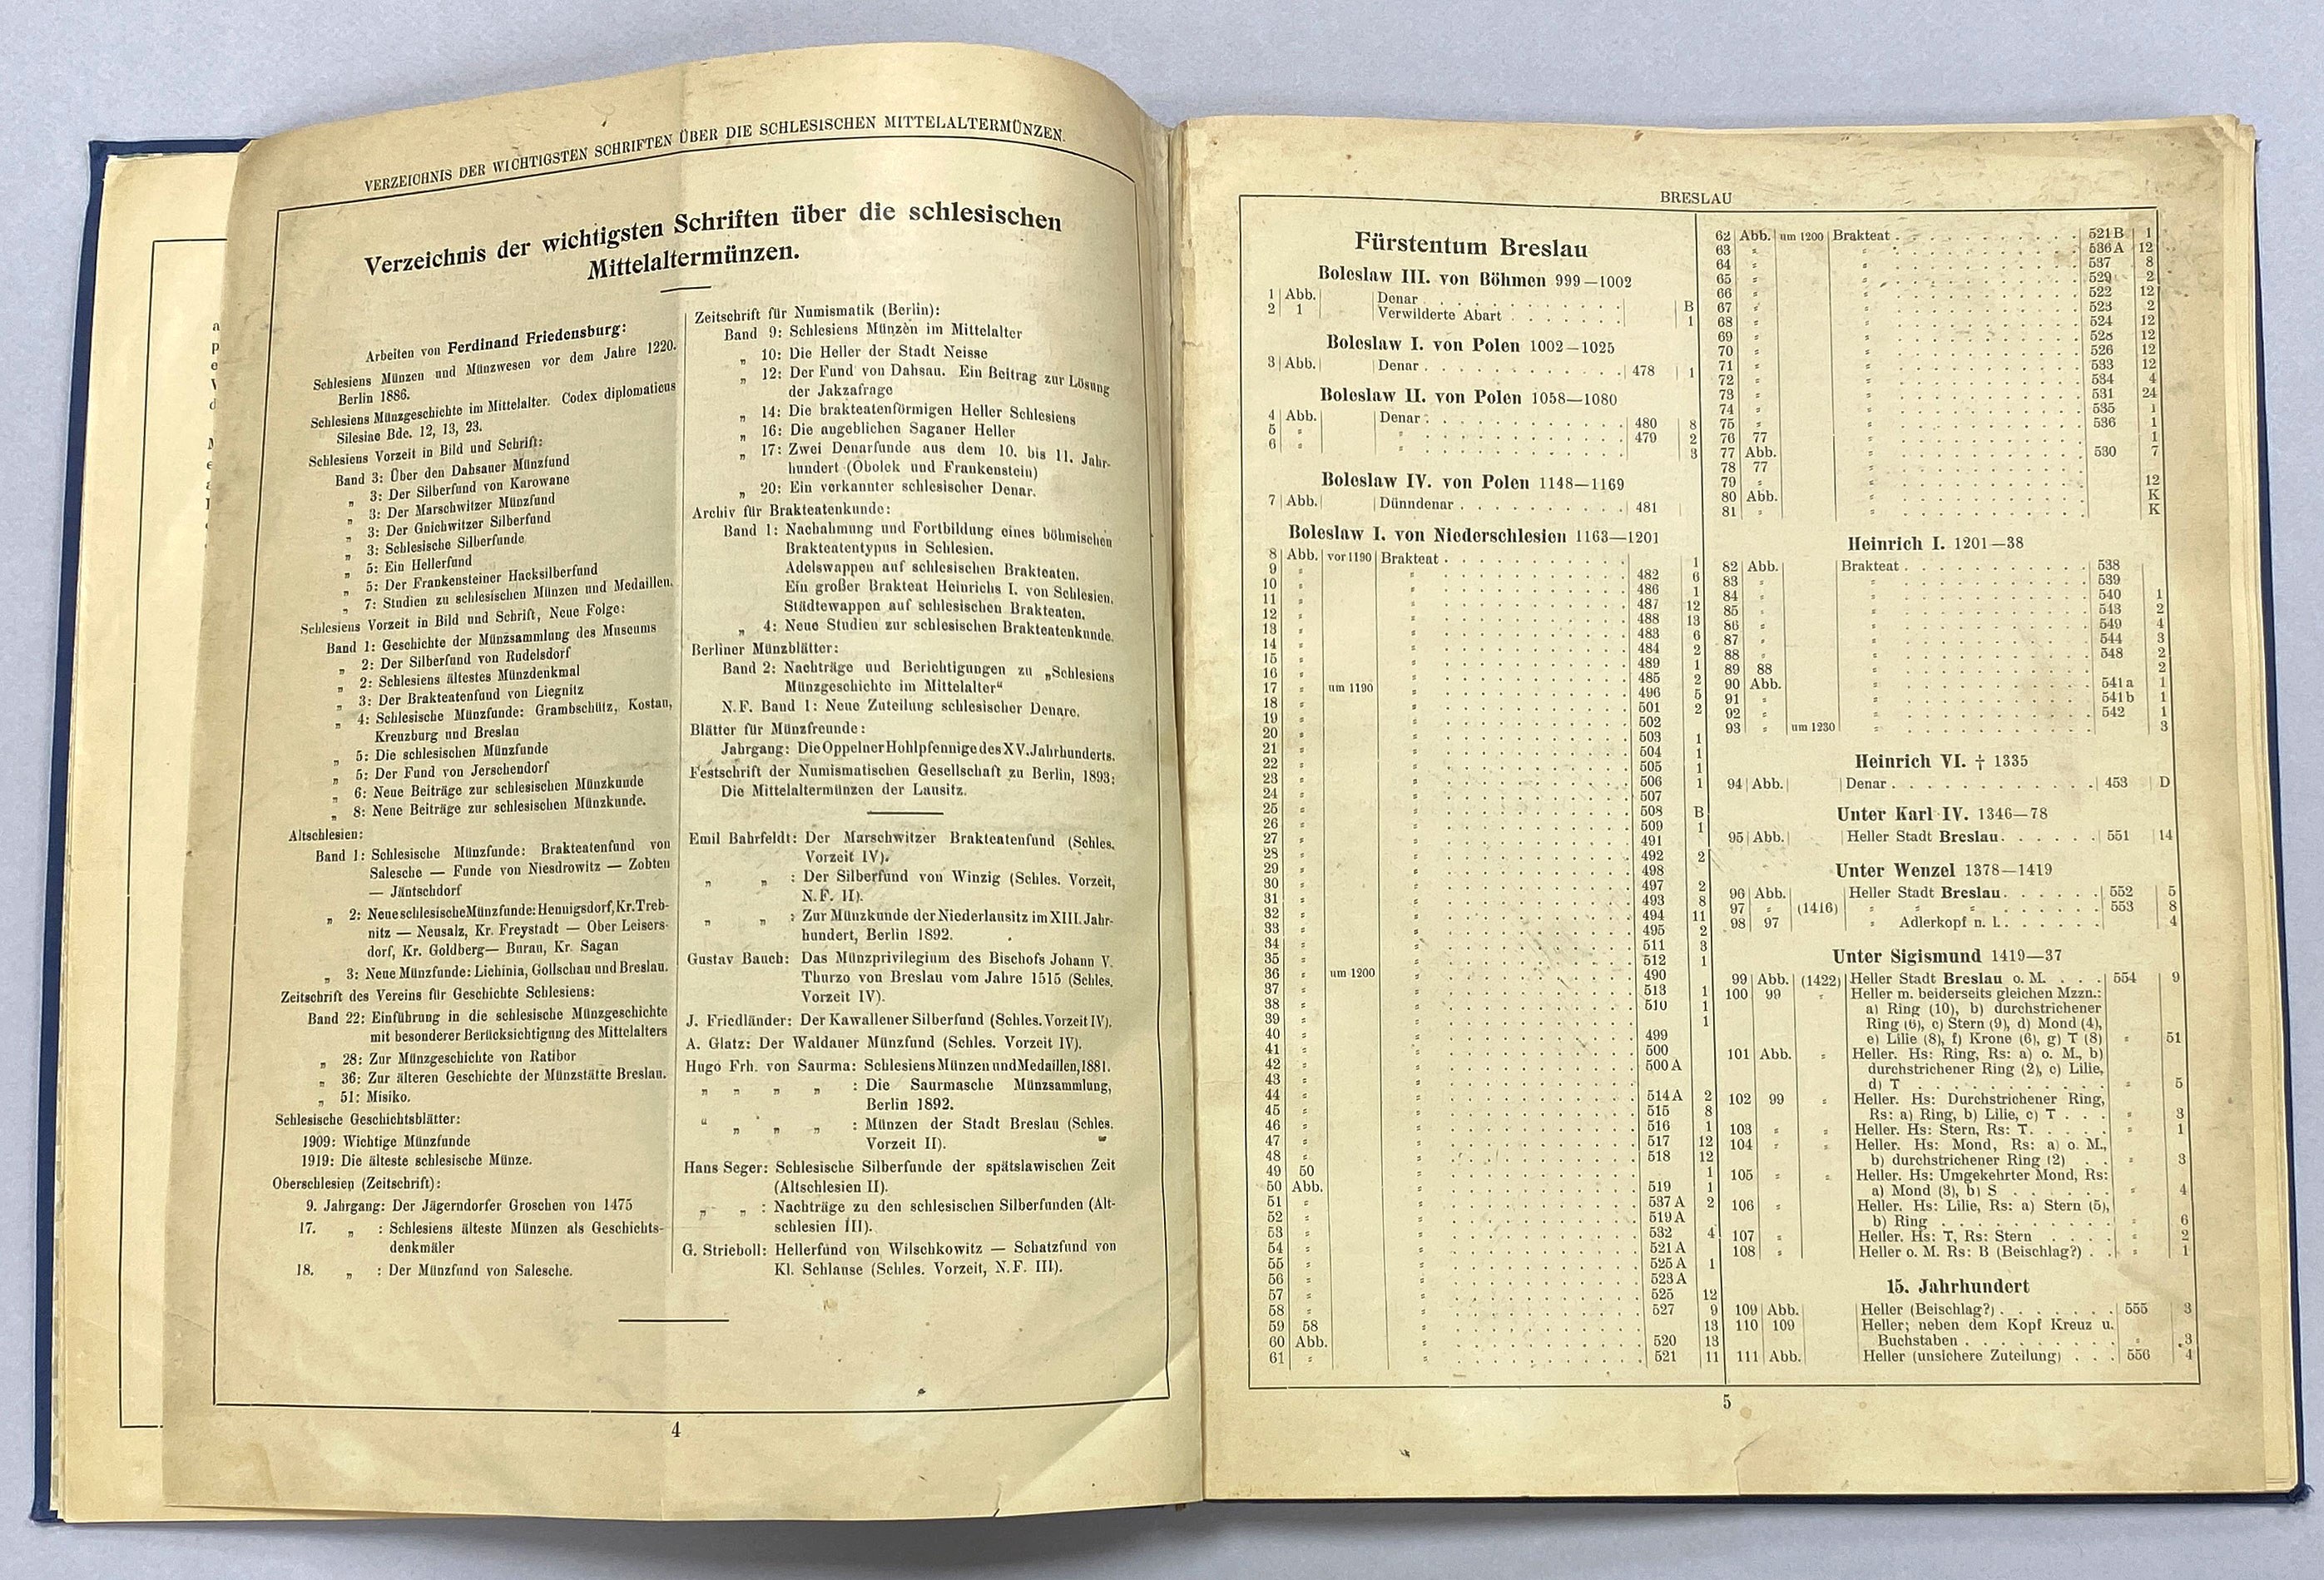 VERZEICHNIS DER WICHTIGSTEN SCHRIFTEN ÜBER DIE SCHLESISCHEN MITTELALTERMÜNZEN.
Verzeichnis der wichtigsten Schriften über die schlesischen
Mittelaltermünzen.
Arbeiten von Ferdinand Friedensburg:
Schlesiens Münzen und Münzwesen vor dem Jahre 1220.
Berlin 1886.
Schlesiens Münzgeschichte im Mittelalter. Codex diplomaticus
Silesiae Bde. 12, 13, 23.
Schlesiens Vorzeit in Bild und Schrift:
Band 3: Über den Dahsauer Münzfund
„ 3: Der Silberfund von Karowane
„ 3: Der Marschwitzer Münzfund
„ 3: Der Gnichwitzer Silberfund
„ 3: Schlesische Silberfunde
„ 5: Ein Hellerfund
„ 5: Der Frankensteiner Hacksilberfund
„ 7: Studien zu schlesischen Münzen und Medaillen.
Schlesiens Vorzeit in Bild und Schrift, Neue Folge:
Band 1: Geschichte der Münzsammlung des Museums
„ 2: Der Silberfund von Rudelsdorf
„ 2: Schlesiens ältestes Münzdenkmal
„ 3: Der Brakteatenfund von Liegnitz
„ 4: Schlesische Münzfunde: Grambschütz, Kostau,
Kreuzburg und Breslau
„ 5: Die schlesischen Münzfunde
„ 5: Der Fund von Jerschendorf
„ 6: Neue Beiträge zur schlesischen Münzkunde
„ 8: Neue Beiträge zur schlesischen Münzkunde.
Altschlesien:
Band 1: Schlesische Münzfunde: Brakteatenfund von
Salesche — Funde von Niesdrowitz — Zobten
— Jäntschdorf
„ 2: Neue schlesische Münzfunde: Hennigsdorf, Kr. Treb-
nitz — Neusalz, Kr. Freystadt — Ober Leisers-
dorf, Kr. Goldberg— Burau, Kr. Sagan
„ 3: Neue Münzfunde: Lichinia, Gollschau und Breslau.
Zeitschrift des Vereins für Geschichte Schlesiens:
Band 22: Einführung in die schlesische Münzgeschichte
mit besonderer Berücksichtigung des Mittelalters
„ 28: Zur Münzgeschichte von Ratibor
„ 36: Zur älteren Geschichte der Münzstätte Breslau.
„ 51: Misiko.
Schlesische Geschichtsblätter:
1909: Wichtige Münzfunde
1919: Die älteste schlesische Münze.
Oberschlesien (Zeitschrift):
9. Jahrgang: Der Jägerndorfer Groschen von 1475
17. „ : Schlesiens älteste Münzen als Geschichts-
denkmäler
18. „ : Der Münzfund von Salesche.
Zeitschrift für Numismatik (Berlin):
Band 9: Schlesiens Münzen im Mittelalter
„ 10: Die Heller der Stadt Neisse
„ 12: Der Fund von Dahsau. Ein Beitrag zur Lösung
der Jakzafrage
„ 14: Die brakteatenförmigen Heller Schlesiens
„ 16: Die angeblichen Saganer Heller
„ 17: Zwei Denarfunde aus dem 10. bis 11. Jahr-
hundert (Obolek und Frankenstein)
„ 20: Ein verkannter schlesischer Denar.
Archiv für Brakteatenkunde:
Band 1: Nachahmung und Fortbildung eines böhmischen
Brakteatentypus in Schlesien.
Adelswappen auf schlesischen Brakteaten.
Ein großer Brakteat Heinrichs I. von Schlesien.
Städtewappen auf schlesischen Brakteaten.
„ 4: Neue Studien zur schlesischen Brakteatenkunde.
Berliner Münzblätter:
Band 2: Nachträge und Berichtigungen zu „Schlesiens
Münzgeschichte im Mittelalter“
N.F. Band 1: Neue Zuteilung schlesischer Denare.
Blätter für Münzfreunde:
Jahrgang: Die Oppelner Hohlpfennige des XV. Jahrhunderts.
Festschrift der Numismatischen Gesellschaft zu Berlin, 1893:
Die Mittelaltermünzen der Lausitz.
Emil Bahrfeldt: Der Marschwitzer Brakteatenfund (Schles.
Vorzeit IV).
„ „ : Der Silberfund von Winzig (Schles. Vorzeit,
N.F. II).
„ „ : Zur Münzkunde der Niederlausitz im XIII. Jahr-
hundert, Berlin 1892.
Gustav Bauch: Das Münzprivilegium des Bischofs Johann V.
Thurzo von Breslau vom Jahre 1515 (Schles.
Vorzeit IV).
J. Friedländer: Der Kawallener Silberfund (Schles. Vorzeit IV).
A. Glatz: Der Waldauer Münzfund (Schles. Vorzeit IV).
Hugo Frh. von Saurma: Schlesiens Münzen und Medaillen, 1881.
„ „ „ „ : Die Saurmasche Münzsammlung,
Berlin 1892.
“ „ „ „ : Münzen der Stadt Breslau (Schles.
Vorzeit II).
Hans Seger: Schlesische Silberfunde der spätslawischen Zeit
(Altschlesien II).
„ „ : Nachträge zu den schlesischen Silberfunden (Alt-
schlesien III).
G. Strieboll: Hellerfund von Wilschkowitz — Schatzfund von
Kl. Schlause (Schles. Vorzeit, N.F. III).
4
BRESLAU
Fürstentum Breslau
Boleslaw III. von Böhmen 999—1002
1 Abb. Denar B
2 1 Verwilderte Abart 1
Boleslaw I. von Polen 1002—1025
3 Abb. Denar 478 1
Boleslaw II. von Polen 1058—1080
4 Abb. Denar 480 8
5 „ „ 479 2
6 „ „ 3
Boleslaw IV. von Polen 1148—1169
7 Abb. Dünndenar 481
Boleslaw I. von Niederschlesien 1163—1201
8 Abb. vor 1190 Brakteat 1
9 „ „ 482 6
10 „ „ 486 1
11 „ „ 487 12
12 „ „ 488 13
13 „ „ 483 6
14 „ „ 484 2
15 „ „ 489 1
16 „ „ 485 2
17 „ um 1190 „ 496 5
18 „ „ 501 2
19 „ „ 502
20 „ „ 503 1
21 „ „ 504 1
22 „ „ 505 1
23 „ „ 506 1
24 „ „ 507
25 „ „ 508 B
26 „ „ 509 1
27 „ „ 491
28 „ „ 492 2
29 „ „ 498
30 „ „ 497 2
31 „ „ 493 8
32 „ „ 494 11
33 „ „ 495 2
34 „ „ 511 3
35 „ „ 512 1
36 „ um 1200 „ 490
37 „ „ 513 1
38 „ „ 510 1
39 „ „ 1
40 „ „ 499
41 „ „ 500
42 „ „ 500 A
43 „ „
44 „ „ 514 A 2
45 „ „ 515 8
46 „ „ 516 1
47 „ „ 517 12
48 „ „ 518 12
49 50 „ 1
50 Abb. „ 519 1
51 „ „ 537 A 2
52 „ „ 519 A
53 „ „ 532 4
54 „ „ 521 A
55 „ „ 525 A 1
56 „ „ 523 A
57 „ „ 525 12
58 „ „ 527 9
59 58 „ 13
60 Abb. „ 520 13
61 „ „ 521 11
62 Abb. um 1200 Brakteat 521 B 1
63 „ „ 536 A 12
64 „ „ 537 8
65 „ „ 529 2
66 „ „ 522 12
67 „ „ 523 2
68 „ „ 524 12
69 „ „ 528 12
70 „ „ 526 12
71 „ „ 533 12
72 „ „ 534 4
73 „ „ 531 24
74 „ „ 535 1
75 „ „ 536 1
76 77 „ 1
77 Abb. „ 530 7
78 77 „
79 „ „ 12
80 Abb. „ K
81 „ „ K
Heinrich I. 1201—38
82 Abb. Brakteat 538
83 „ „ 539
84 „ „ 540 1
85 „ „ 543 2
86 „ „ 549 4
87 „ „ 544 3
88 „ „ 548 2
89 88 „ 2
90 Abb. „ 541 a 1
91 „ „ 541 b 1
92 „ „ 542 1
93 „ um 1230 „ 3
Heinrich VI. † 1335
94 Abb. Denar 453 D
Unter Karl IV. 1346—78
95 Abb. Heller Stadt Breslau 551 14
Unter Wenzel 1378—1419
96 Abb. Heller Stadt Breslau 552 5
97 „ (1416) „ „ 553 8
98 97 „ Adlerkopf n. l. 4
Unter Sigismund 1419—37
99 Abb. (1422) Heller Stadt Breslau o. M. 554 9
100 99 „ Heller m. beiderseits gleichen Mzzn.:
a) Ring (10), b) durchstrichener
Ring (6), c) Stern (9), d) Mond (4),
e) Lilie (8), f) Krone (6), g) T (8) „ 51
101 Abb. „ Heller. Hs: Ring, Rs: a) o. M., b)
durchstrichener Ring (2), c) Lilie,
d) T „ 5
102 99 „ Heller. Hs: Durchstrichener Ring,
Rs: a) Ring, b) Lilie, c) T „ 3
103 „ „ Heller. Hs: Stern, Rs: T „ 1
104 „ „ Heller. Hs: Mond, Rs: a) o. M.,
b) durchstrichener Ring (2) „ 3
105 „ „ Heller. Hs: Umgekehrter Mond, Rs:
a) Mond (3), b) S „ 4
106 „ Heller. Hs: Lilie, Rs: a) Stern (5),
b) Ring „ 6
107 „ Heller. Hs: T, Rs: Stern „ 2
108 „ Heller o. M. Rs: B (Beischlag?) „ 1
15. Jahrhundert
109 Abb. Heller (Beischlag?) 555 3
110 109 Heller; neben dem Kopf Kreuz u.
Buchstaben „ 3
111 Abb. Heller (unsichere Zuteilung) 556 4
5